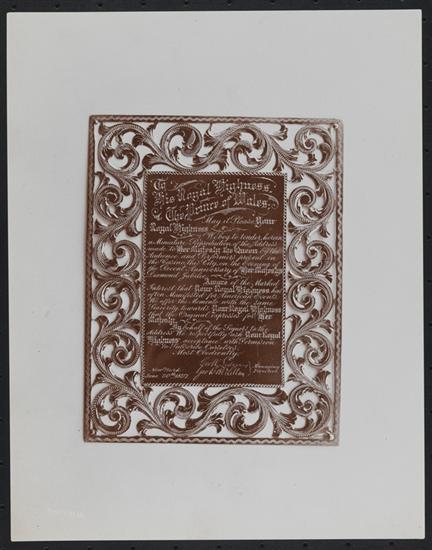 To
His Royal Highness,
The Prince of Wales,
May it Please Your
Royal Highness
We beg to tender, herein
a Miniature Reproduction of the Address
made to Her Majesty the Queen by the
Audience and Performers present in
the Casino, this City, on the Evening of
the Recent Anniversary of Her Majesty's
Diamond Jubilee.
Aware of the Marked
Interest that Your Royal Highness has
often Manifested for American Events
We offer this Memento with the same
feeling towards Your Royal Highness
that the Original Expressed for Her
Majesty.
On behalf of the Signers to the
Address We respectfully ask Your Royal
Highness' acceptance with Permission
to Subscribe Ourselves
Most Obediently,
Geo W.
Managing
New York
June 20th 1897